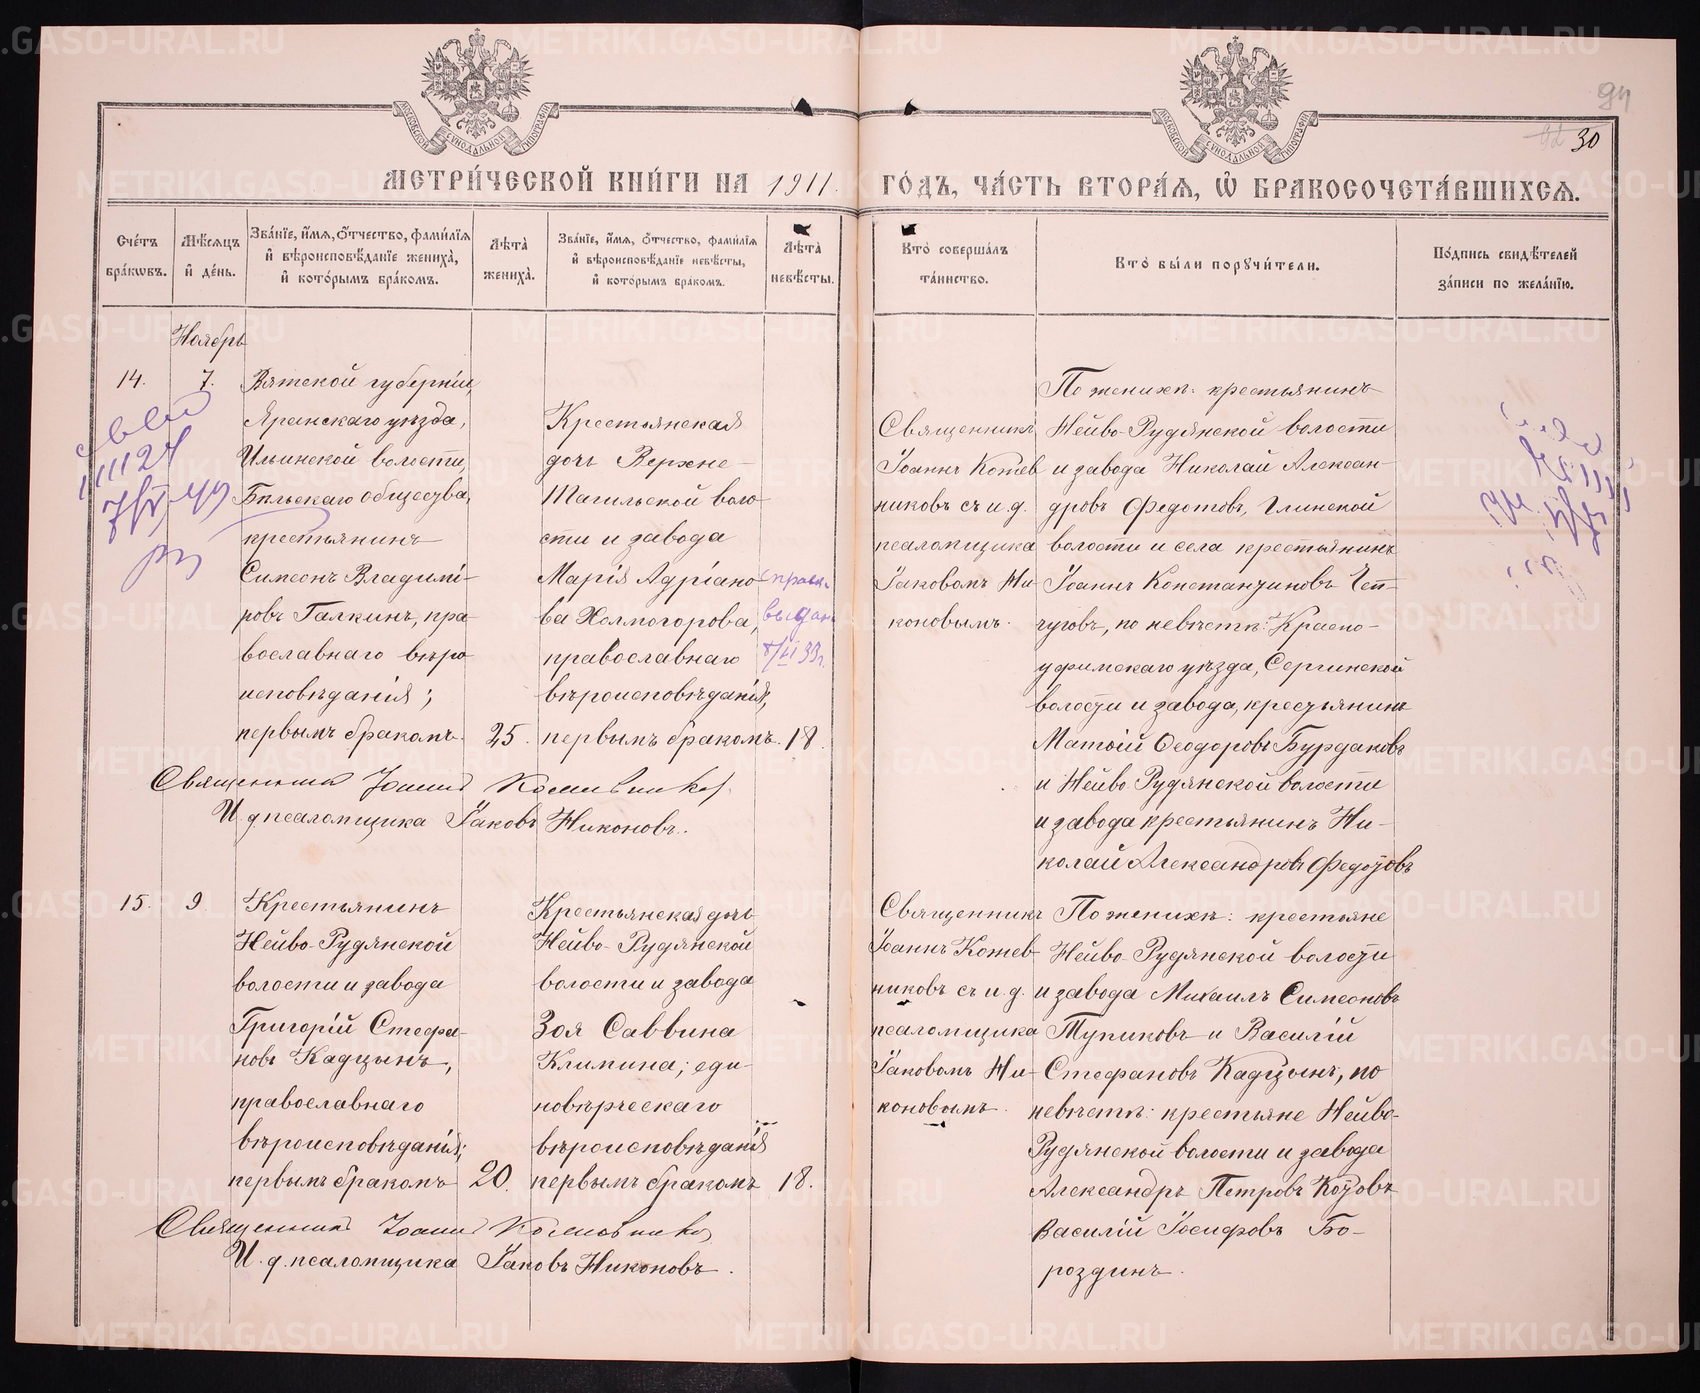 94
30
МЕТРИ́ЧЕСКОЙ КНИ́ГИ НА 1911. ГО́ДЪ, ЧА́СТЬ ВТОРА́Я, Ѡ҆ БРАКОСОЧЕТА́ВШИХСЯ.
Сче́тъ бра́кѡвъ.
Мѣ́сяцъ и҆ де́нь.
Зва́нїе, и҆́мя, ѻ҆́тчество, фами́лїя и҆ вѣроисповѣ́данїе жениха̀, и҆ кото́рымъ бра́комъ.
Лѣ́та жениха̀.
Зва́нїе, и҆́мя, ѻ҆́тчество, фами́лїя и҆ вѣроисповѣ́данїе невѣ́сты, и҆ кото́рымъ бра́комъ.
Лѣ́та невѣ́сты.
Кто̀ соверша́лъ та́инство.
Кто̀ бы́ли порꙋчи́тели.
По́дпись свидѣ́телей за́писи по жела́нїю.
Ноябрь
14.
7.
Вятской губернiи,
Яранскаго уѣзда,
Ильинской волости,
Бѣльскаго общества,
крестьянинъ
Симеонъ Владимi-
ровъ Галкинъ, пра-
вославнаго вѣро
исповѣданiя;
первымъ бракомъ.
25.
Крестьянская
дочь Верхне-
Тагильской воло-
сти и завода
Марiя Адрiано-
ва Холмогорова,
православнаго
вѣроисповѣданiя,
первымъ бракомъ.
18.
выдан
Священникъ
Iоаннъ Котев
никовъ съ и. д.
псаломщика
Iаковомъ Ни-
коновымъ.
По женихѣ: крестьянинъ
Нейво-Рудянской волости
и завода Николай Алексан-
дровъ Федотовъ, Глинской
волости и села крестьянинъ
Iоаннъ Константиновъ Чеп-
чуговъ, по невѣстѣ: Красно-
уфимскаго уѣзда, Сергинской
волости и завода, крестьянинъ
Матѳiй Ѳеодоровъ Бурдаковъ
и Нейво Рудянской волости
и завода крестьянинъ Ни-
колай Александровъ Федотовъ
Священникъ Iоаннъ Котевников.
И. д. псаломщика Iаковъ Никоновъ.
15.
9
Крестьянинъ
Нейво-Рудянской
волости и завода
Григорiй Стефа-
новъ Кадцынъ,
православнаго
вѣроисповѣданiя;
первымъ бракомъ
20.
Крестьянская дочь
Нейво-Рудянской
волости и завода
Зоя Саввина
Климина; еди-
новѣрческаго
вѣроисповѣданiя
первымъ бракомъ
18.
Священникъ
Iоаннъ Котев
никовъ съ и. д.
псаломщика
Iаковомъ Ни-
коновымъ.
По женихѣ: крестьяне
Нейво-Рудянской волости
и завода Михаилъ Симеоновъ
Тупиковъ и Василiй
Стефановъ Кадцынъ, по
невѣстѣ: крестьяне Нейво-
Рудянской волости и завода
Александръ Петровъ Котовъ
Василiй Iосифовъ Бо-
роздинъ.
Священникъ Iоаннъ Котевников
И. д. псаломщика Iаковъ Никоновъ.
METRIKI.GASO-URAL.RU